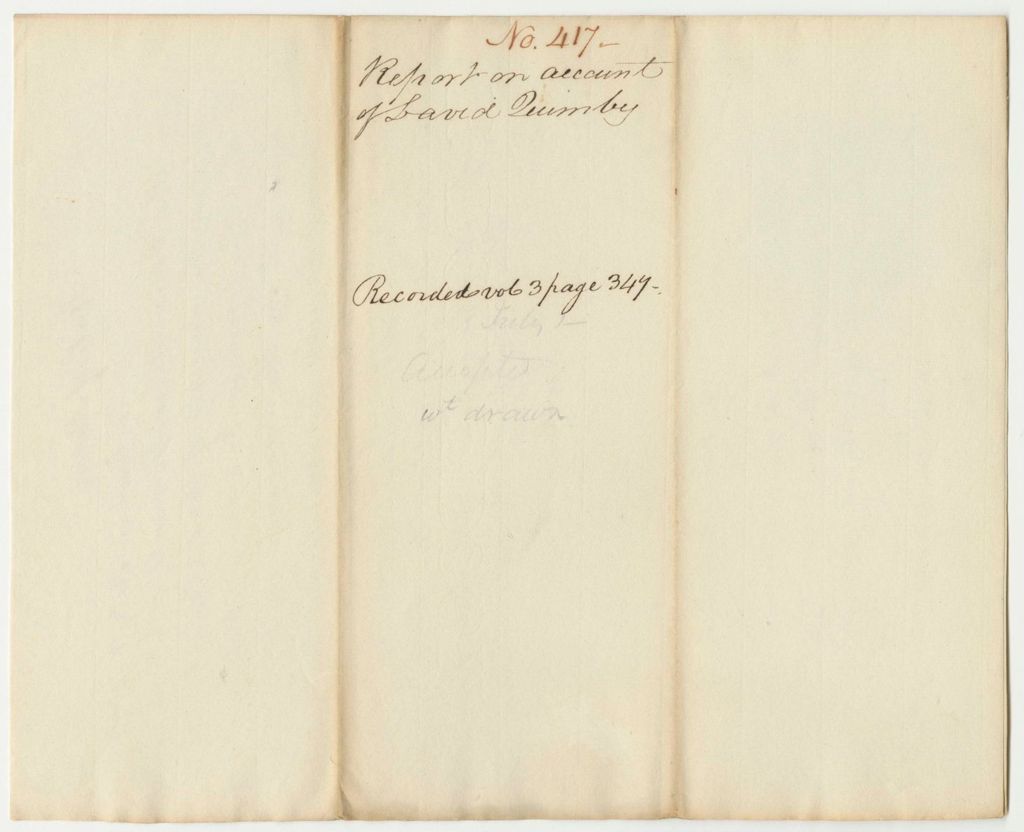 No. 417-
Report on account
of David Quimby
Recorded vol 3 page 347-
July 1-
Accepted
wt drawn